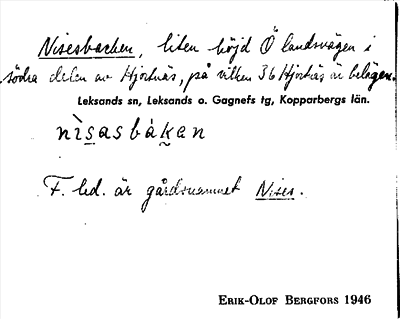 Nisesbacken, liten höjd Ö landsvägen i
södra delen av Hjortnäs, på vilken 36 Hjortnäs är belägen.
Leksands sn, Leksands o. Gagnefs tg, Kopparbergs län.
nìsasbákan
F. led. är gårdsnamnet Nises.
ERIK-OLOF BERGFORS 1946